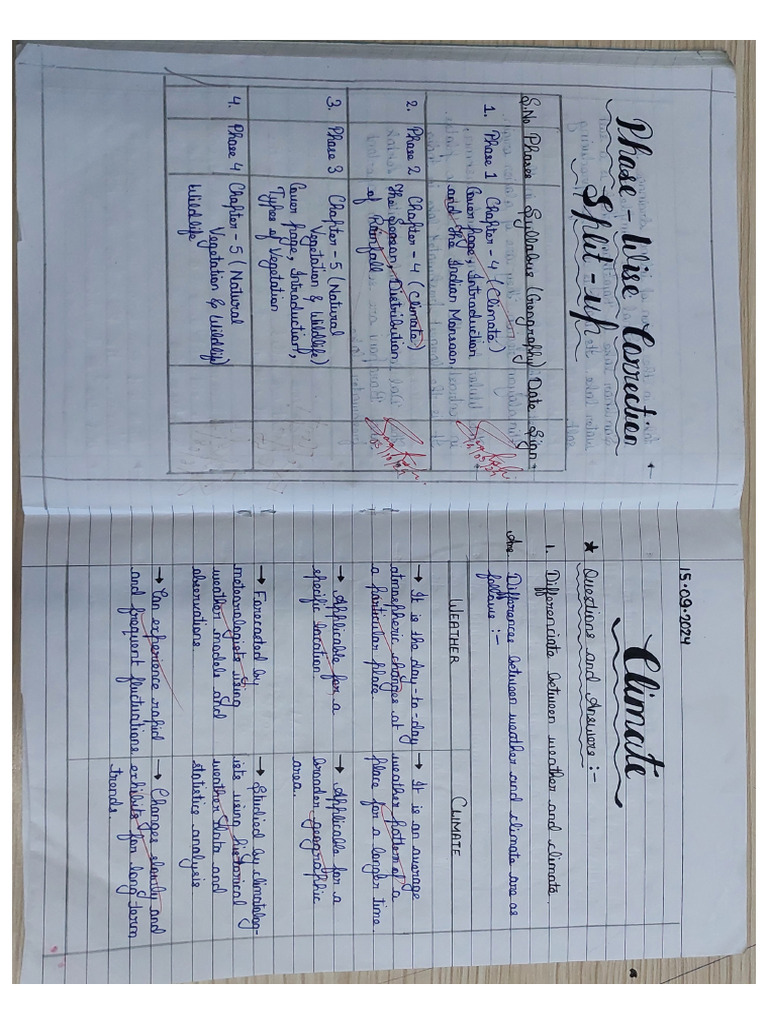 Phase - Wise Correction
Split - up
S.No Phases Syllabus (Geography) Date Sign
1. Phase 1 Chapter - 4 (Climate)
Cover page, Introduction
and The Indian Monsoon
2. Phase 2 Chapter - 4 (Climate)
The Season, Distribution
of Rainfall
3. Phase 3 Chapter - 5 (Natural
Vegetation & Wildlife)
Cover page, Introduction,
Types of Vegetation
4. Phase 4 Chapter - 5 (Natural
Vegetation & Wildlife)
Wildlife
15.09.2024
Climate
★ Questions and Answers :-
1. Differenciate between weather and climate.
Ans Differences between weather and climate are as
follows :-
WEATHER
→ It is the day-to-day
atmospheric changes at
a particular place.
→ Applicable for a
specific location.
→ Forecasted by
meteorologists using
weather models and
observations
→ Can experience rapid
and frequent fluctuations
CLIMATE
→ It is an average
weather pattern of a
place for a longer time.
→ Applicable for a
broader geographic
area.
→ Studied by climatolog-
ists using historical
weather data and
statistics analysis
→ Changes slowly and
exhibits for long term
trends.